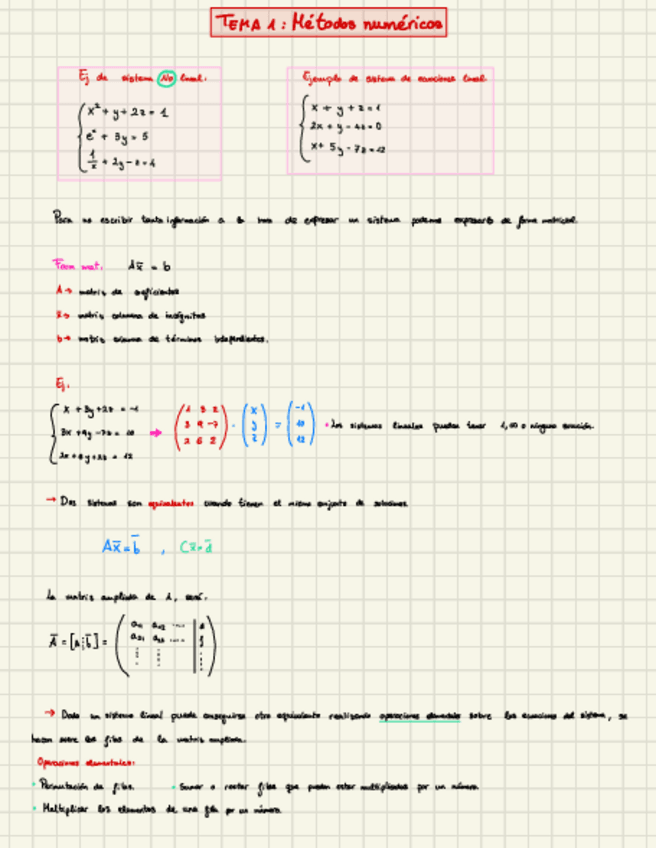 TEMA 1: Métodos numéricos
Ej de sistema No lineal.
x² + y + 2z = 1
eˣ + 3y = 5
1/x + 2y - z = 4
Ejemplo de sistema de ecuaciones lineal
x + y + z = 1
2x + y - 4z = 0
x + 5y - 7z = 12
Para no escribir tanta información a la hora de expresar un sistema podemos expresarlo de forma matricial.
Form mat. Ax̄ = b
A → matriz de coeficientes
x̄ → matriz columna de incógnitas
b → matriz columna de términos independientes.
Ej.
x + 3y + 2z = -1
3x + 9y - 7z = 10
2x + 6y + 2z = 12
⇒ (1 3 2 / 3 9 -7 / 2 6 2) · (x / y / z) = (-1 / 10 / 12) · Los sistemas lineales pueden tener 1, ∞ o ninguna solución.
→ Dos sistemas son equivalentes cuando tienen el mismo conjunto de soluciones.
Ax̄ = b̄ , Cx̄ = d̄
La matriz ampliada de A, será:
Ā = [A¦b̄] =
a₁₁ a₁₂ ....
a₂₁ a₂₂ ....
→ Dado un sistema lineal puede conseguirse otro equivalente realizando operaciones elementales sobre las ecuaciones del sistema, se
hacen sobre las filas de la matriz ampliada.
Operaciones elementales:
· Permutación de filas. · Sumar o restar filas que puedan estar multiplicadas por un número.
· Multiplicar los elementos de una fila por un número.